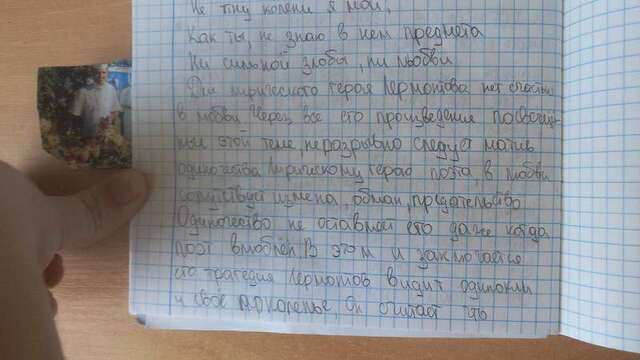 Не гну колени я мои,
Как ты, не знаю в нем предмета
Ни сильной злобы, ни любви
Для лирического героя Лермонтова нет счастья
в любви. Через все его произведения посвящен
ные этой теме, неразрывно следует мотив
одиночества. Лирическому герою поэта, в любви
сопутствуй измена, обман, предательство.
Одиночество не оставляет его даже когда
поэт влюблен. В этом и заключается
его трагедия Лермонтов видит одиноким
и свое поколенье, Он считает что